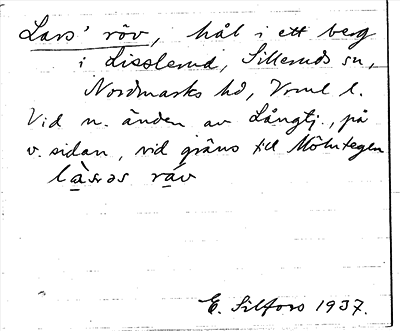 Lars' röv, hål i ett berg
i Lisslerud, Silleruds sn,
Nordmarks hd, Vrml l.
Vid n. änden av Långtj., på
v. sidan, vid gräns till Mölntegen
làsəs rǟv
E. Silfors 1937.